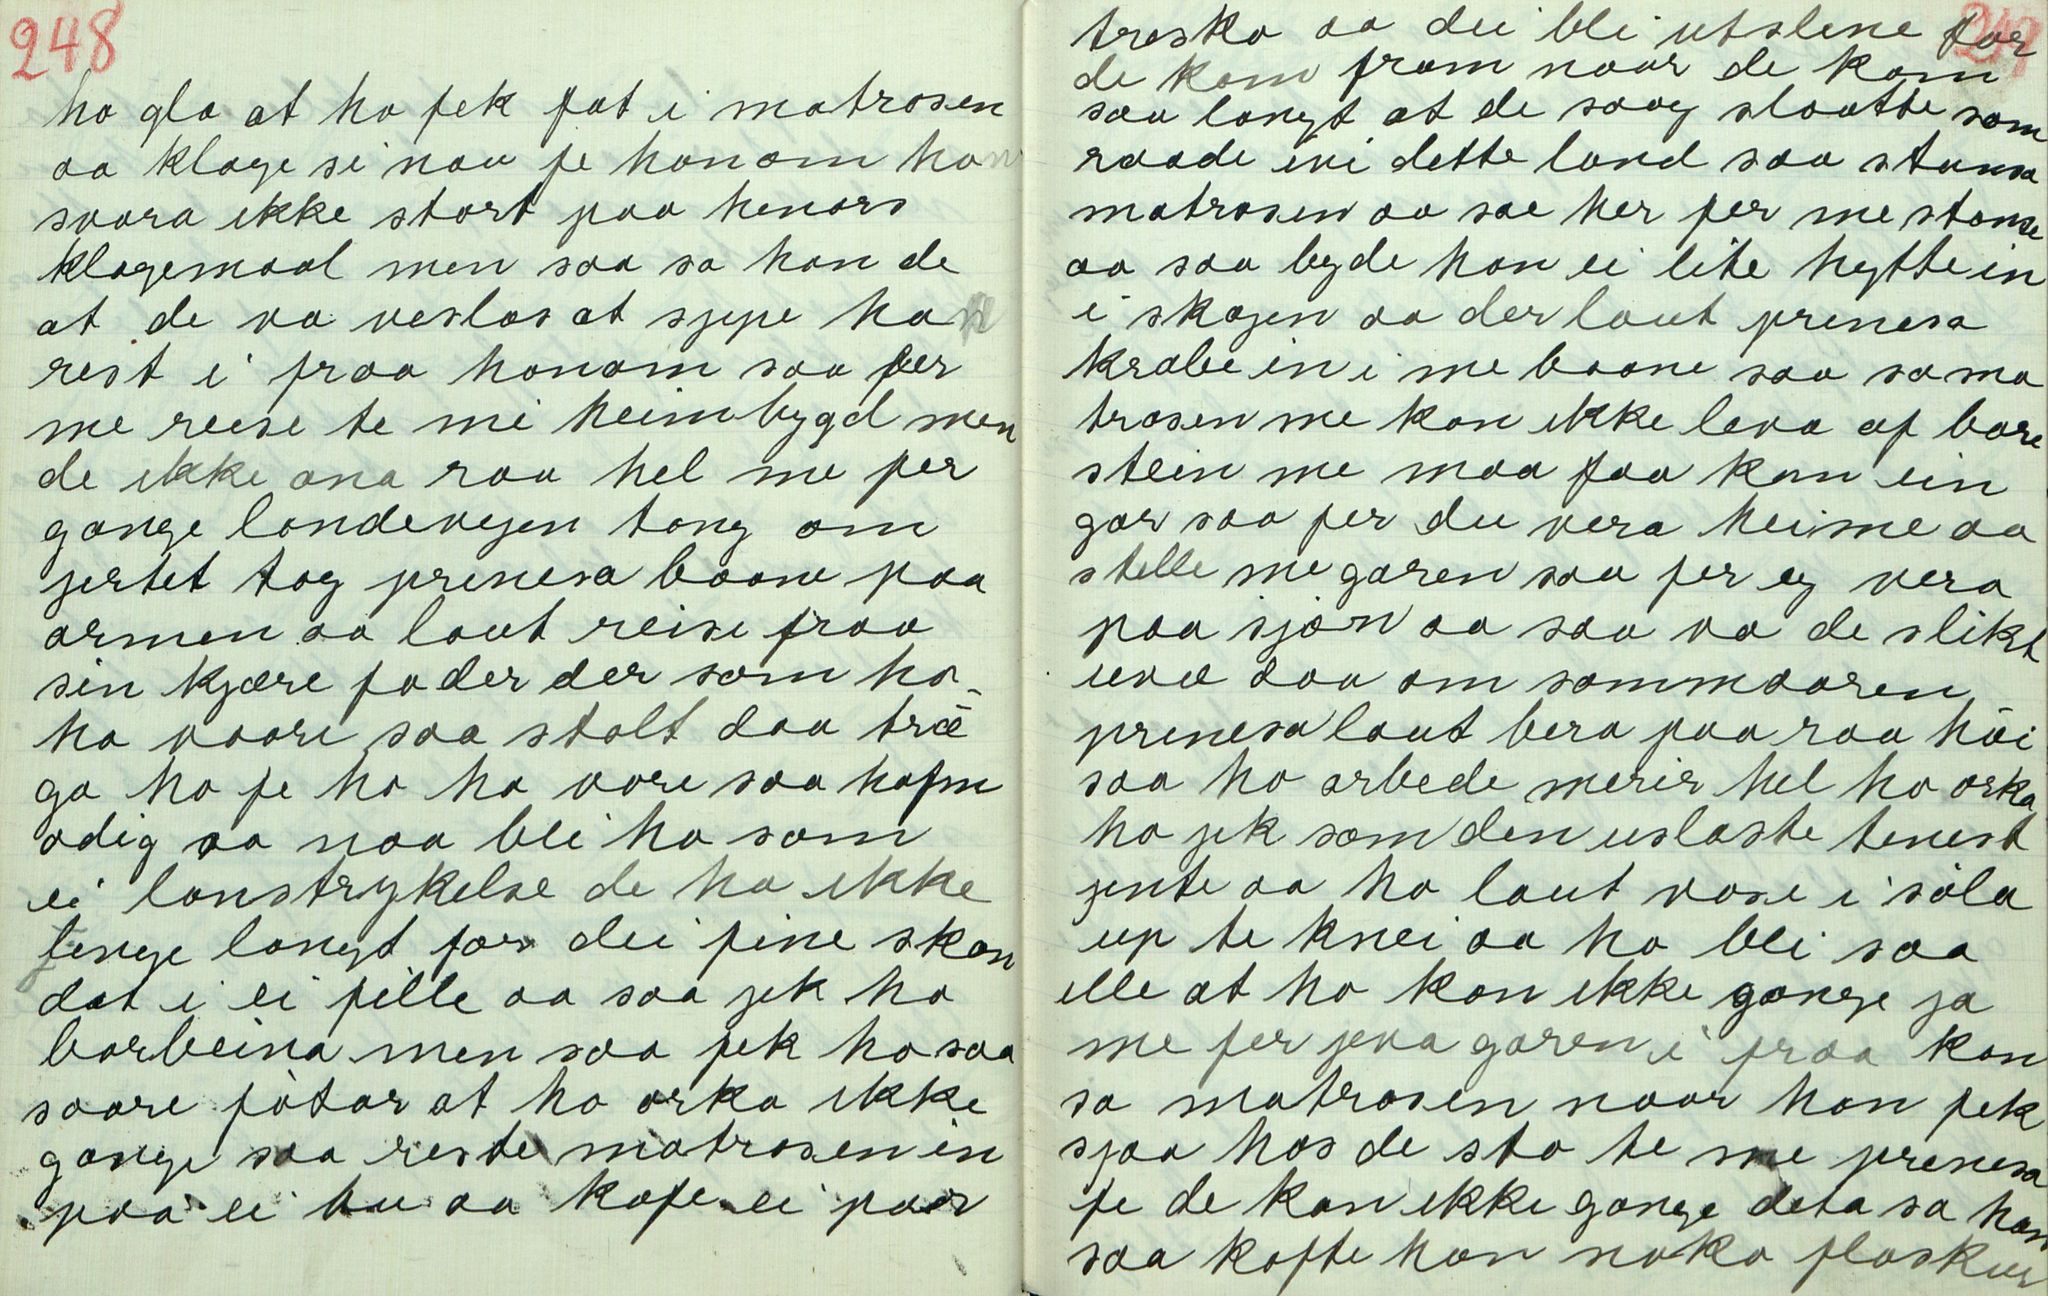 248
ho gla at ho fek fat i matrosen
aa klage si nau fe honom han
svara ikke stort paa henars
klagemaal men saa sa han de
at de va veslas at sjepe ha
reist i fraa honom saa fer
me reise te mi heimbygd men
de ikke ana raa hel me fer
gange landevegen tong om
jertet tog prinesa baane paa
armen aa laut reise fraa
sin kjære fader der som ho
ha vaare saa stolt daa træ
ga ho fe ho ha vore saa hofm
odig aa naa blei ho som
ei lanstrykelse de ha ikke
fenge langt før dei fine skon
dat i ei fille aa saa jek ho
barbeina men saa fek ho saa
saare føtar at ho orka ikke
gange saa reste matrosen in
paa ei hu aa kafe ei paar
249
tresko aa dei blei utslene før
de kom fram naar de kom
saa langt at de saag slaatte som
raade ini dette land saa stansa
matrosen aa sae her fer me stanse
aa saa bygde han ei lite hytte in
i skogen aa der laut prinesa
krabe in i me baane saa sa ma
trosen me kan ikke leva af bare
stein me maa faa kan ein
gar saa fer du vera heime aa
stelle me garen saa fer eg vera
paa sjøn aa saa va de slikt
uvæ daa om sommaaren
prinesa laut bera paa raa höi
saa ho arbede merir hel ho orka
ho jek som den uslaste tenest
jente aa ho laut vase i söla
up te knei aa ho blei saa
ille at ho kan ikke gange ja
me fer jeva garen i fraa kan
sa matrosen naar han fek
sjaa hos de sto te me prinesa
fe de kan ikke gange deta sa han
saa kafte han noko flaskur